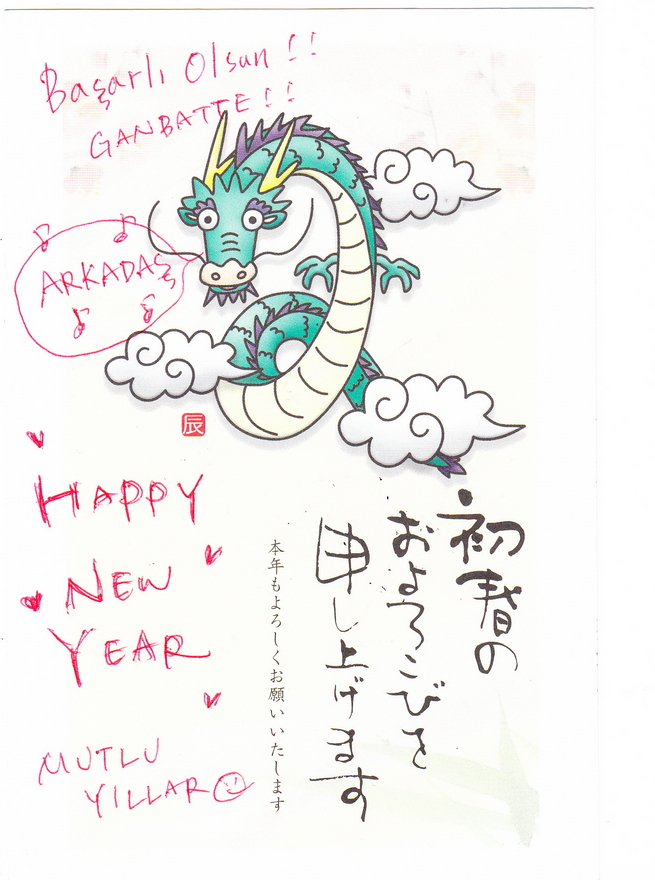 Başarlı Olsun !!
GANBATTE !!
ARKADAŞ
辰
HAPPY
NEW
YEAR
MUTLU
YILLAR
初春の
およろこびを
申し上げます
本年もよろしくお願いいたします